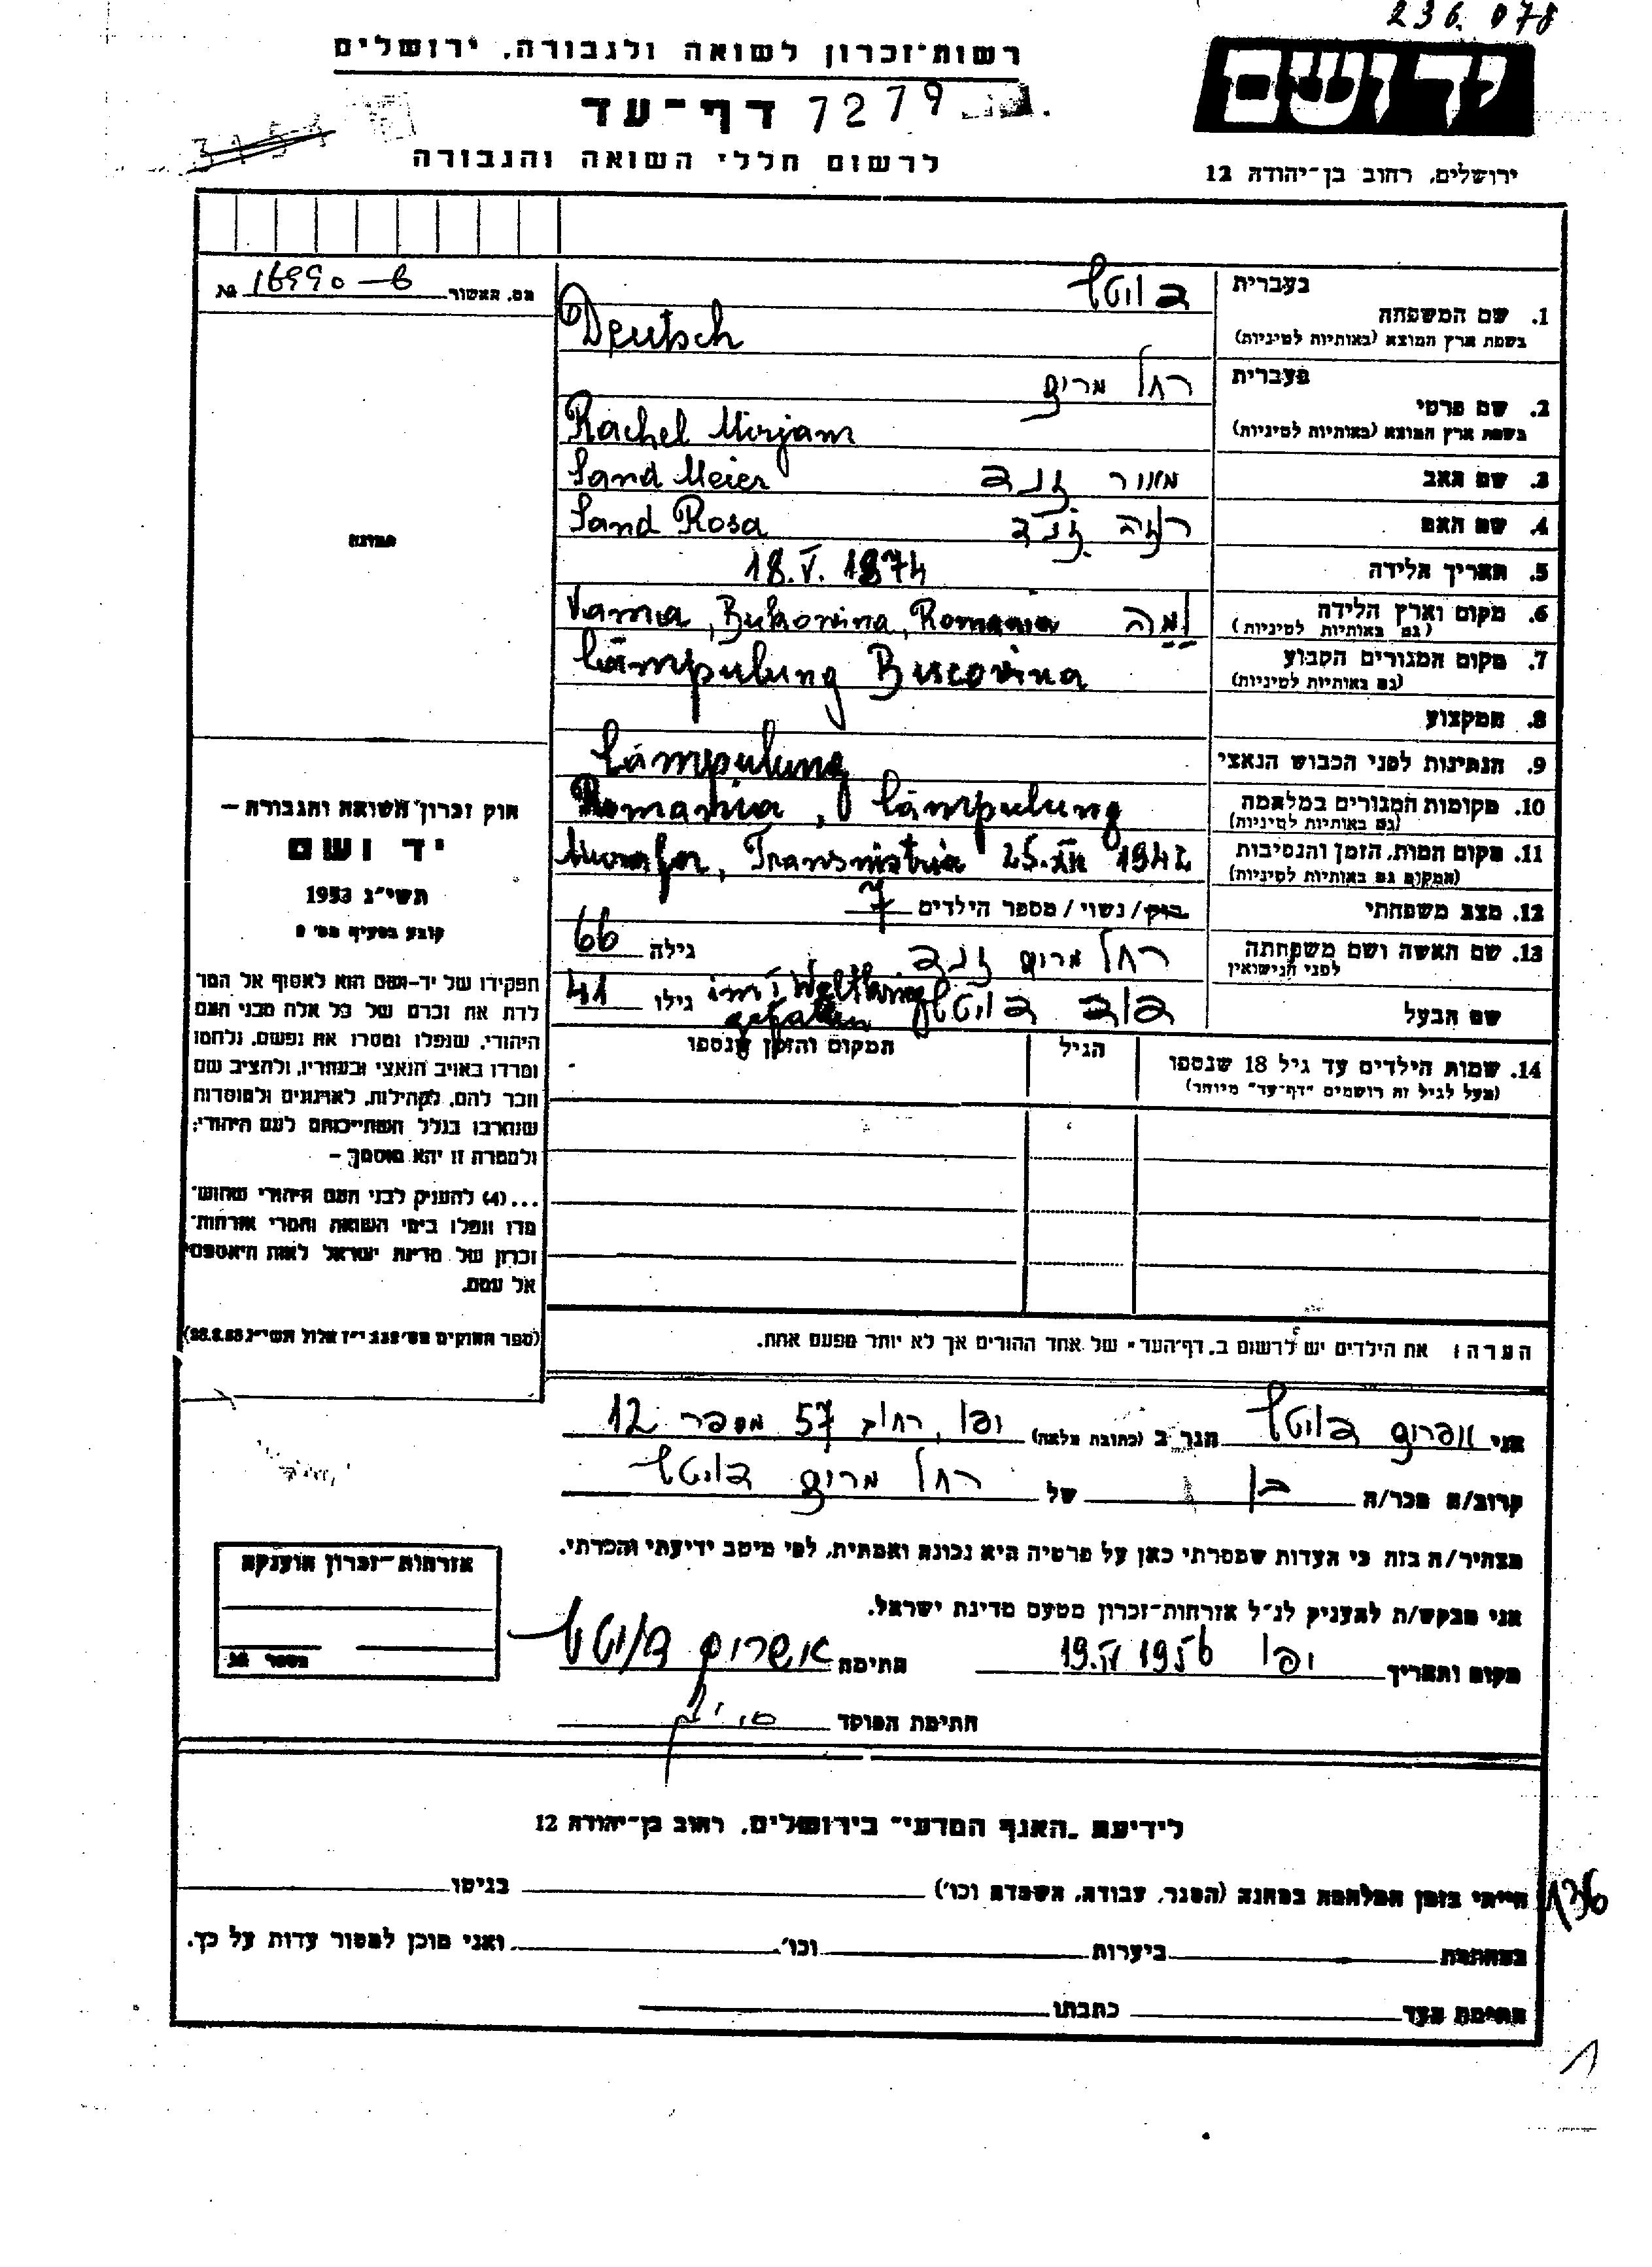 236.078
רשות־זכרון לשואה ולגבורה, ירושלים
יד ושם
דף־עד 7279
3154
לרשום חללי השואה והגבורה
ירושלים, רחוב בן־יהודה 12
מס. האשור 16990-ט
1. שם המשפחה בעברית דויטש
בשפת ארץ המוצא (באותיות לטיניות) Deutsch
2. שם פרטי בעברית רחל מרים
בשפת ארץ המוצא (באותיות לטיניות) Rachel Mirjam
3. שם האב מאיר זנד Sand Meier
4. שם האם רוזה זנד Sand Rosa
תמונה
5. תאריך הלידה 18.V.1874
6. מקום וארץ הלידה Vama, Bukovina, Romania ומה
(גם באותיות לטיניות)
7. מקום המגורים הקבוע Câmpulung Bucovina
(גם באותיות לטיניות)
8. המקצוע
9. הנתינות לפני הכבוש הנאצי Câmpulung
10. מקומות המגורים במלחמה Romania, Câmpulung
(גם באותיות לטיניות)
11. מקום המות, הזמן והנסיבות Murafa, Transnistria 25.XII 1942
(המקום גם באותיות לטיניות)
12. מצב משפחתי רוק/נשוי/מספר הילדים 7
13. שם האשה ושם משפחתה רחל מרים זנד גילה 66
לפני הנישואין
שם הבעל דוד דויטש im I Weltkrieg gefallen גילו 41
14. שמות הילדים עד גיל 18 שנספו הגיל המקום והזמן שנספו
(מעל לגיל זה רושמים "דף־עד" מיוחד)
חוק זכרון השואה והגבורה –
יד ושם
תשי"ג 1953
קובע בסעיף מס' 2
תפקידו של יד-ושם הוא לאסוף אל המו־
לדת את זכרם של כל אלה מבני העם
היהודי, שנפלו ומסרו את נפשם, נלחמו
ומרדו באויב הנאצי ובעוזריו, ולהציב שם
וזכר להם, לקהילות, לארגונים ולמוסדות
שנחרבו בגלל השתייכותם לעם היהודי;
ולמטרה זו יהא מוסמך –
...(4) להעניק לבני העם היהודי שהוש־
מדו ונפלו בימי השואה והמרי אזרחות־
זכרון של מדינת ישראל לאות היאספם
אל עמם.
(ספר החוקים מס' 132 י"ז אלול תשי"ג 28.8.53)
הערה: את הילדים יש לרשום ב„דף־העד" של אחד ההורים אך לא יותר מפעם אחת.
אני אפרים דויטש הגר ב (כתובת מלאה) יפו, רחוב 57 מספר 12
קרוב/ה מכר/ה בן של רחל מרים דויטש
מצהיר/ה בזה כי העדות שמסרתי כאן על פרטיה היא נכונה ואמתית, לפי מיטב ידיעתי והכרתי.
אני מבקש/ת להעניק לנ"ל אזרחות־זכרון מטעם מדינת ישראל.
מקום ותאריך יפו 19.IV 1956 חתימה אפרים דויטש
חתימת הפוקד
אזרחות־זכרון הוענקה
מספר
לידיעת „האגף המדעי" בירושלים, רחוב בן־יהודה 12
הייתי בזמן המלחמה במחנה (הסגר, עבודה, השמדה וכו') בגיטו
במחתרת ביערות וכו' ואני מוכן למסור עדות על כך.
חתימת העד כתבתו
136
1